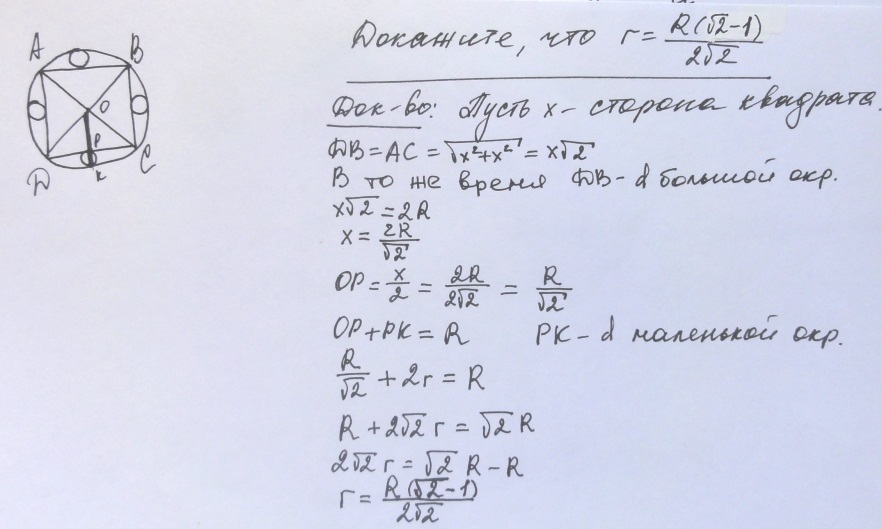 Докажите, что r = R(√2-1)/2√2
Док-во: Пусть x - сторона квадрата.
DB = AC = √x²+x² = x√2
В то же время DB - d большой окр.
x√2 = 2R
x = 2R/√2
OP = x/2 = 2R/2√2 = R/√2
OP + PK = R PK - d маленькой окр.
R/√2 + 2r = R
R + 2√2 r = √2 R
2√2 r = √2 R - R
r = R(√2-1)/2√2
A B
O
P
D K C